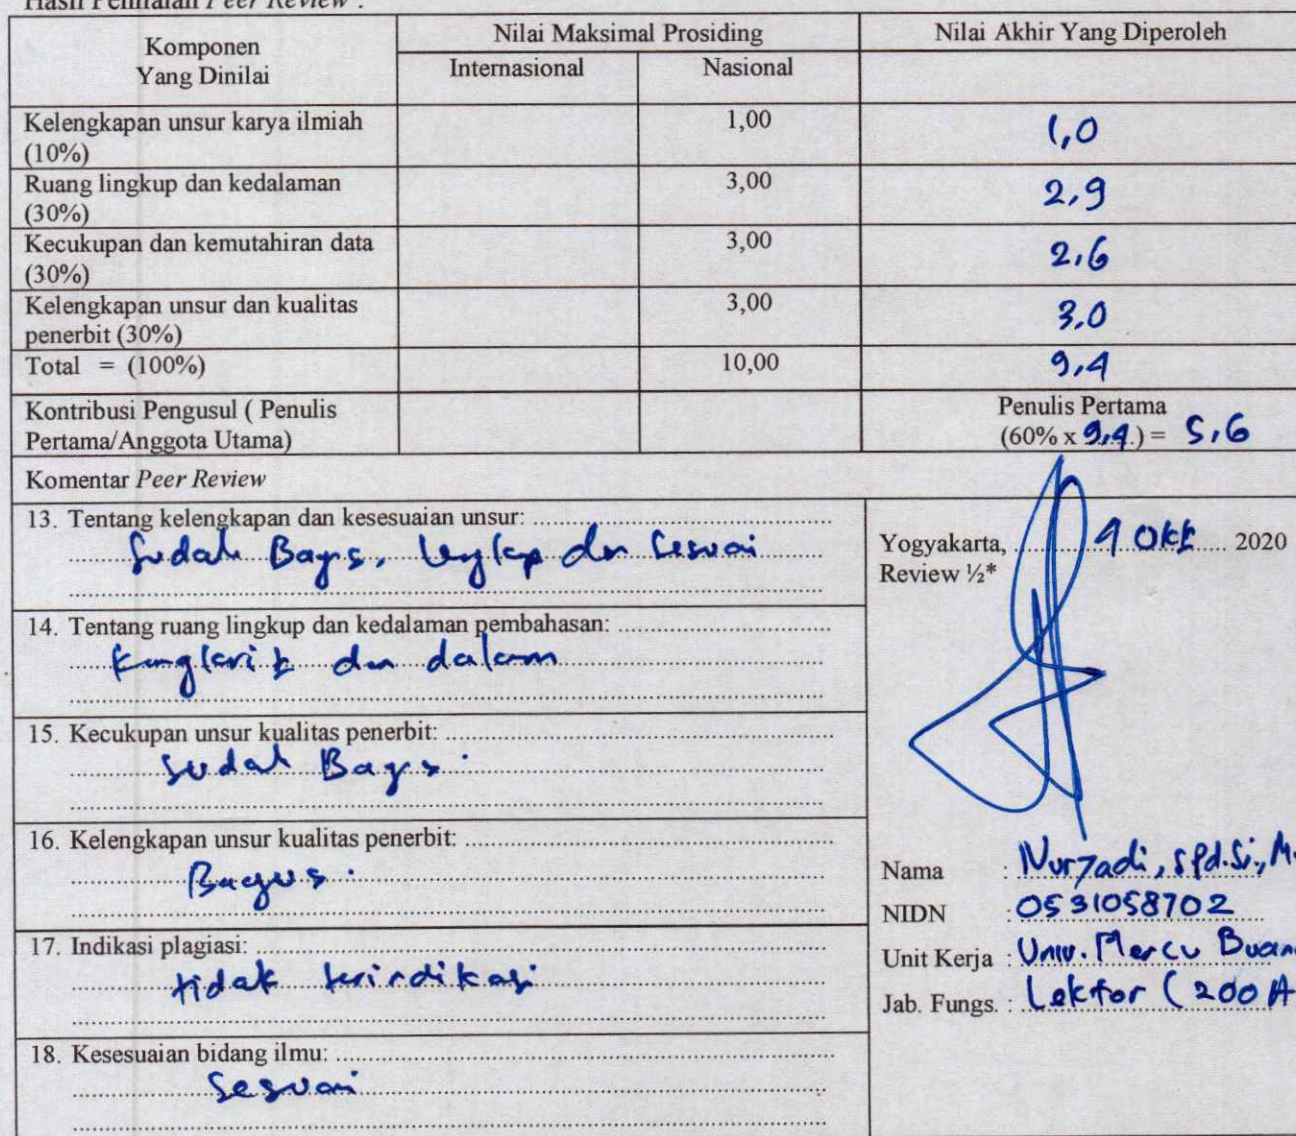 Hasil Penilaian Peer Review :
Komponen Yang Dinilai
Nilai Maksimal Prosiding
Nilai Akhir Yang Diperoleh
Internasional
Nasional
Kelengkapan unsur karya ilmiah (10%)
1,00
1,0
Ruang lingkup dan kedalaman (30%)
3,00
2,9
Kecukupan dan kemutahiran data (30%)
3,00
2,6
Kelengkapan unsur dan kualitas penerbit (30%)
3,00
3,0
Total = (100%)
10,00
9,4
Kontribusi Pengusul ( Penulis Pertama/Anggota Utama)
Penulis Pertama
(60% x 9,4.) = 5,6
Komentar Peer Review
13. Tentang kelengkapan dan kesesuaian unsur:
Sudah Bagus, lengkap dan Sesuai
14. Tentang ruang lingkup dan kedalaman pembahasan:
dan dalam
15. Kecukupan unsur kualitas penerbit:
Sudah Bagus.
16. Kelengkapan unsur kualitas penerbit:
Bagus.
17. Indikasi plagiasi:
tidak terindikasi
18. Kesesuaian bidang ilmu:
Sesuai
Yogyakarta, Okt 2020
Review ½*
Nama : Nuryadi, S.Pd.Si., M.
NIDN : 0531058702
Unit Kerja : Univ. Mercu Buana
Jab. Fungs. : Lektor (200 A